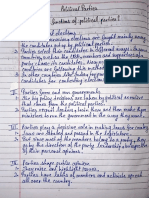 Political Parties
functions of political parties?
I. Contest elections
In most democracies elections are fought mainly among
the candidates put up by political parties.
Parties select their candidates in different ways. In some
countries, such as the USA, members and supporters of a
party choose its candidates.
countries are following this method.
In other countries like India, top party leaders
candidates for contesting elections.
II. Parties form and run governments.
The big policy decisions are taken by political executive
that comes from the political parties.
Parties recruit leaders, train them and then make them
ministers to run the government in the way they want.
III. Parties play a decisive role in making laws for country.
Laws are debated and passed in the legislature.
But since most of the members belong to a party, they go
by the direction of the party leadership, irrespective of
their personal opinions.
IV. Parties shape public opinion
They raise and highlight issues.
Parties have lakhs of members and activists spread all
over the country.